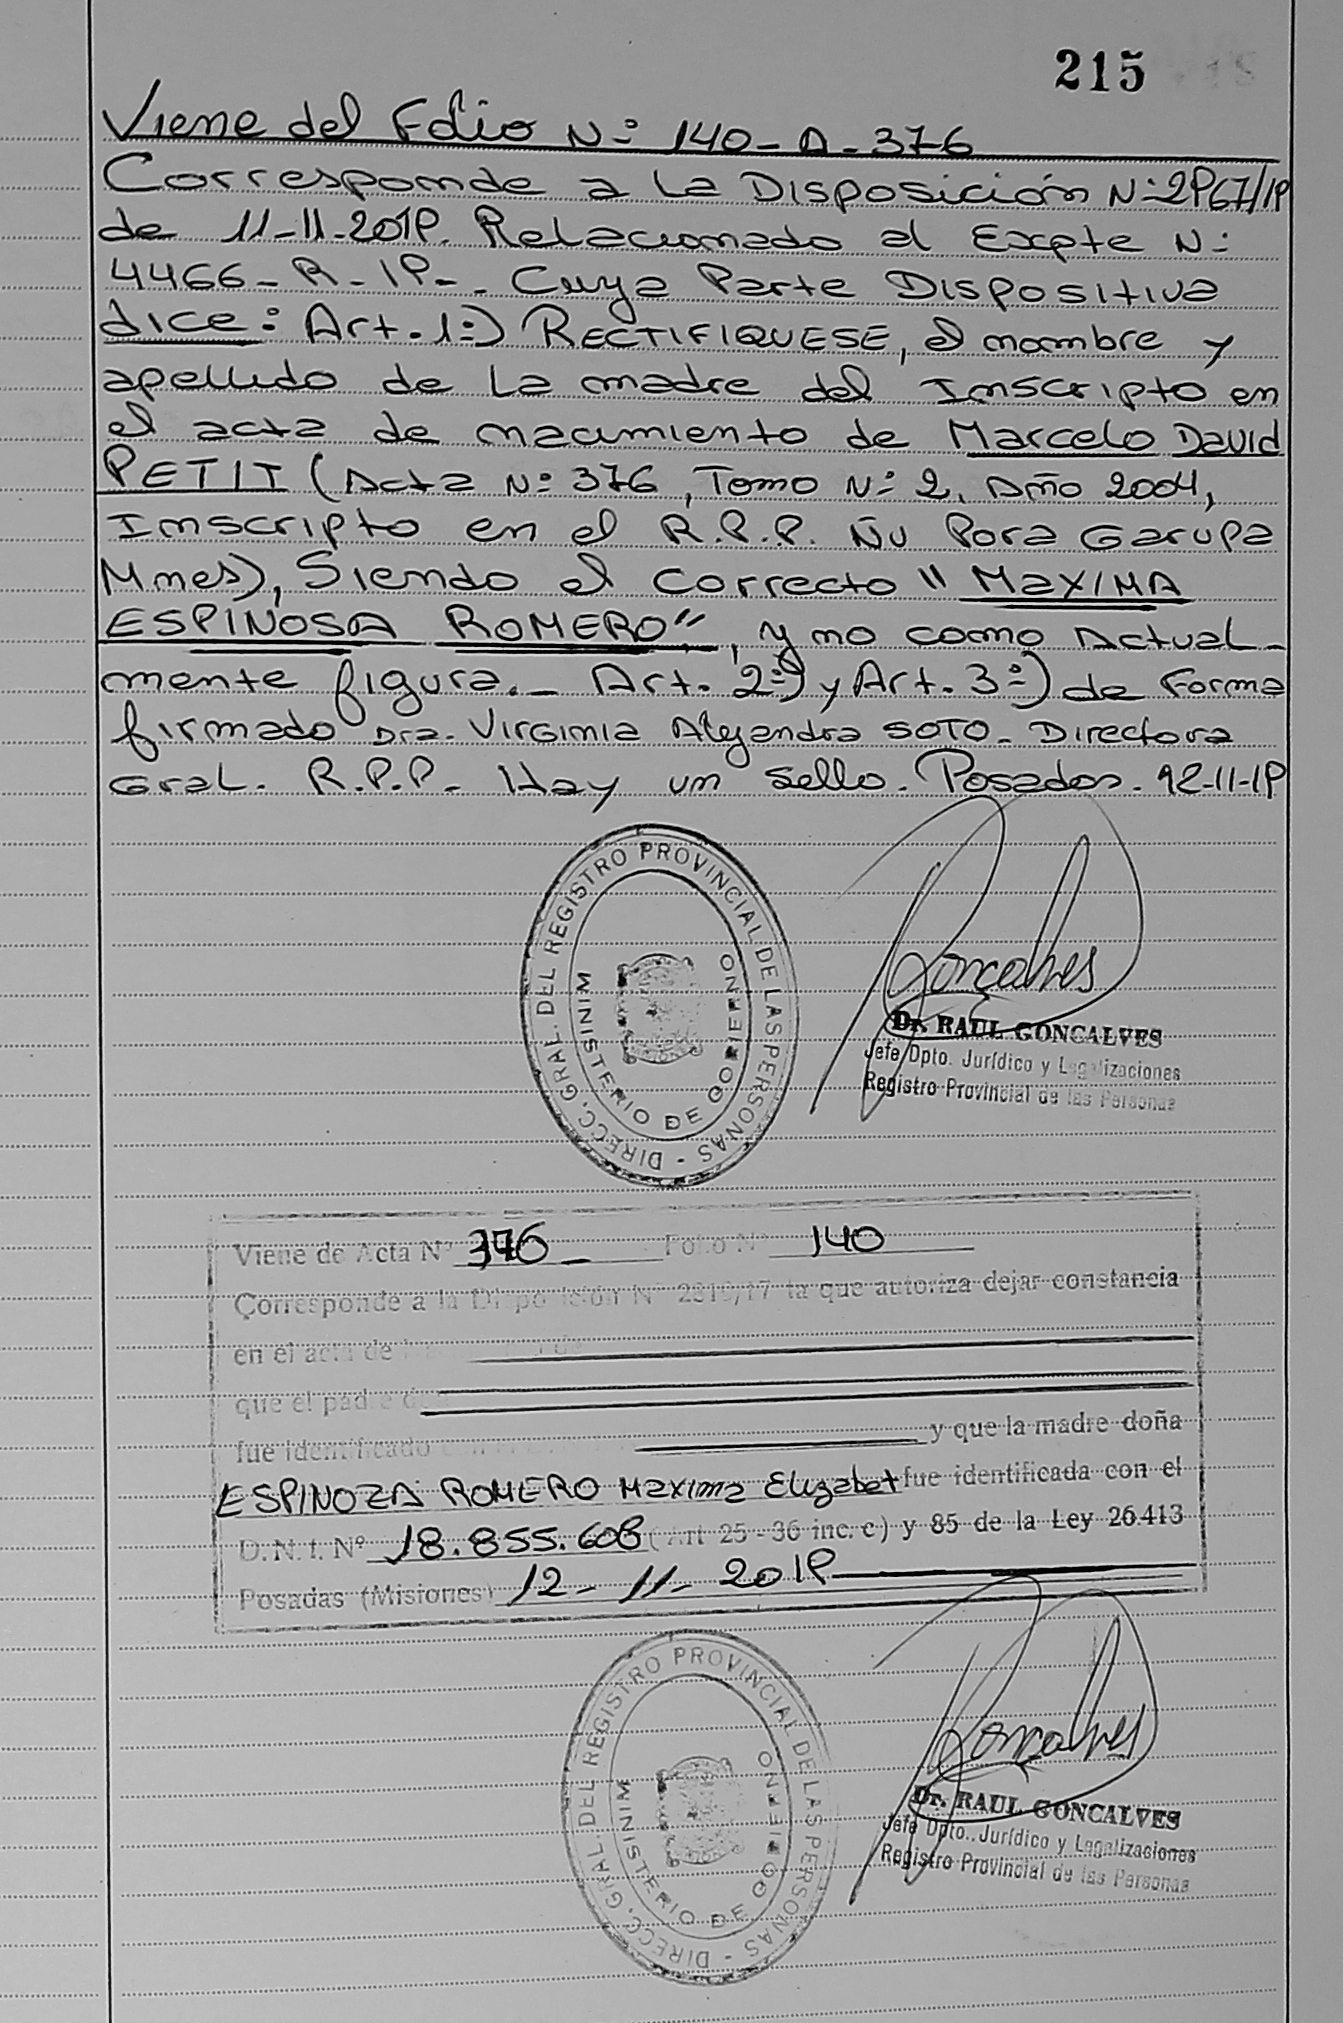 215
Viene del Folio Nº 140-A-376
Corresponde a La Disposición Nº 2967/19
de 11-11-2019. Relacionado al Expte Nº
4466-R-19-. Cuya Parte Dispositiva
dice: Art. 1º) RECTIFIQUESE, el nombre y
apellido de La madre del Inscripto en
el acta de nacimiento de Marcelo David
PETIT (Acta Nº 376, Tomo Nº 2. Año 2004,
Inscripto en el R.P.P. Ñu Pora Garupa
Mnes), Siendo el correcto "MAXIMA
ESPINOSA ROMERO", y no como Actual-
mente figura.- Art. 2º) y Art. 3º) de Forma
firmado Dra. Virginia Alejandra SOTO- Directora
Gral. R.P.P- Hay un sello. Posadas. 12-11-19
DIRECC. GRAL. DEL REGISTRO PROVINCIAL DE LAS PERSONAS -
MINISTERIO DE GOBIERNO
Goncalves
Dr. RAUL GONCALVES
Jefe Dpto. Jurídico y Legalizaciones
Registro Provincial de las Personas
Viene de Acta Nº 376 Folio Nº 140
Corresponde a la Disposición Nº 2319/17 la que autoriza dejar constancia
en el acta de
que el padre
fue identificado y que la madre doña
ESPINOZA ROMERO Maxima Elizabet fue identificada con el
D.N.I. Nº 18.855.608 (Art 25 - 36 inc. c) y 85 de la Ley 26.413
Posadas (Misiones) 12-11-2019
DIRECC. GRAL. DEL REGISTRO PROVINCIAL DE LAS PERSONAS -
MINISTERIO DE GOBIERNO
Goncalves
Dr. RAUL GONCALVES
Jefe Dpto. Jurídico y Legalizaciones
Registro Provincial de las Personas